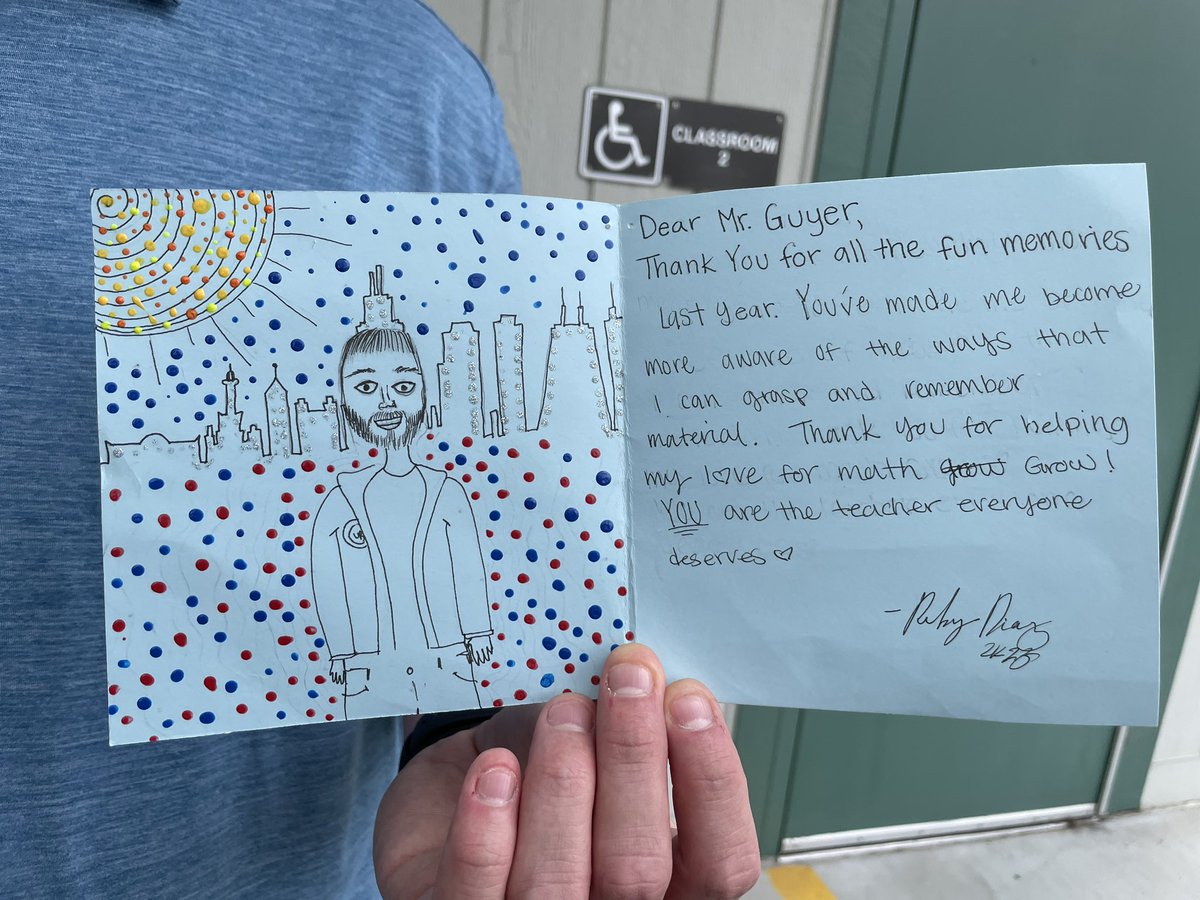 CLASSROOM
2
Dear Mr. Guyer,
Thank You for all the fun memories
last year. You've made me become
more aware of the ways that
I can grasp and remember
material. Thank you for helping
my love for math grow Grow!
YOU are the teacher everyone
deserves ♡
- Ruby Diaz